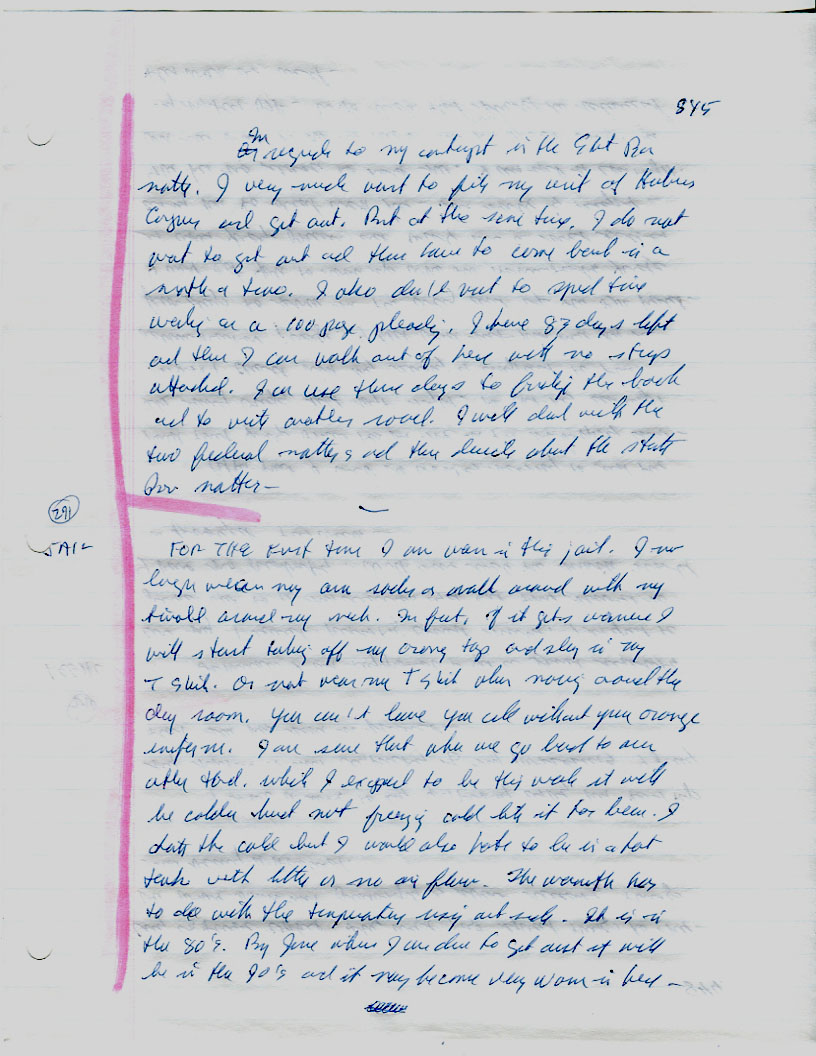 845
In regards to my contempt in the State Bar
matter. I very much want to file my writ of Habeus
Corpus and get out. But at the same time, I do not
want to get out and then have to come back in a
month or two. I also don't want to spend time
working on a 100 page pleading. I have 83 days left
and then I can walk out of here with no strings
attached. I can use these days to finish the book
and to write another novel. I will deal with the
two federal matters and then decide about the state
Bar matter—
291
JAIL
FOR THE First time I am warm in this jail. I no
longer wear my arm socks or walk around with my
towell around my neck. In fact, if it gets warmer I
will start taking off my orange top and stay in my
T Shirt. Or not wear my T Shirt when moving around the
day room. You can't leave your cell without your orange
uniform. I am sure that when we go back to our
other tank. which I expect to be this week it will
be colder but not freezing cold like it has been. I
hate the cold but I would also hate to be in a hot
tank with little or no air flow. The warmth has
to do with the temperature rising out side. It is in
the 80's. By June when I am due to get out it will
be in the 90's and it may become very warm in here—